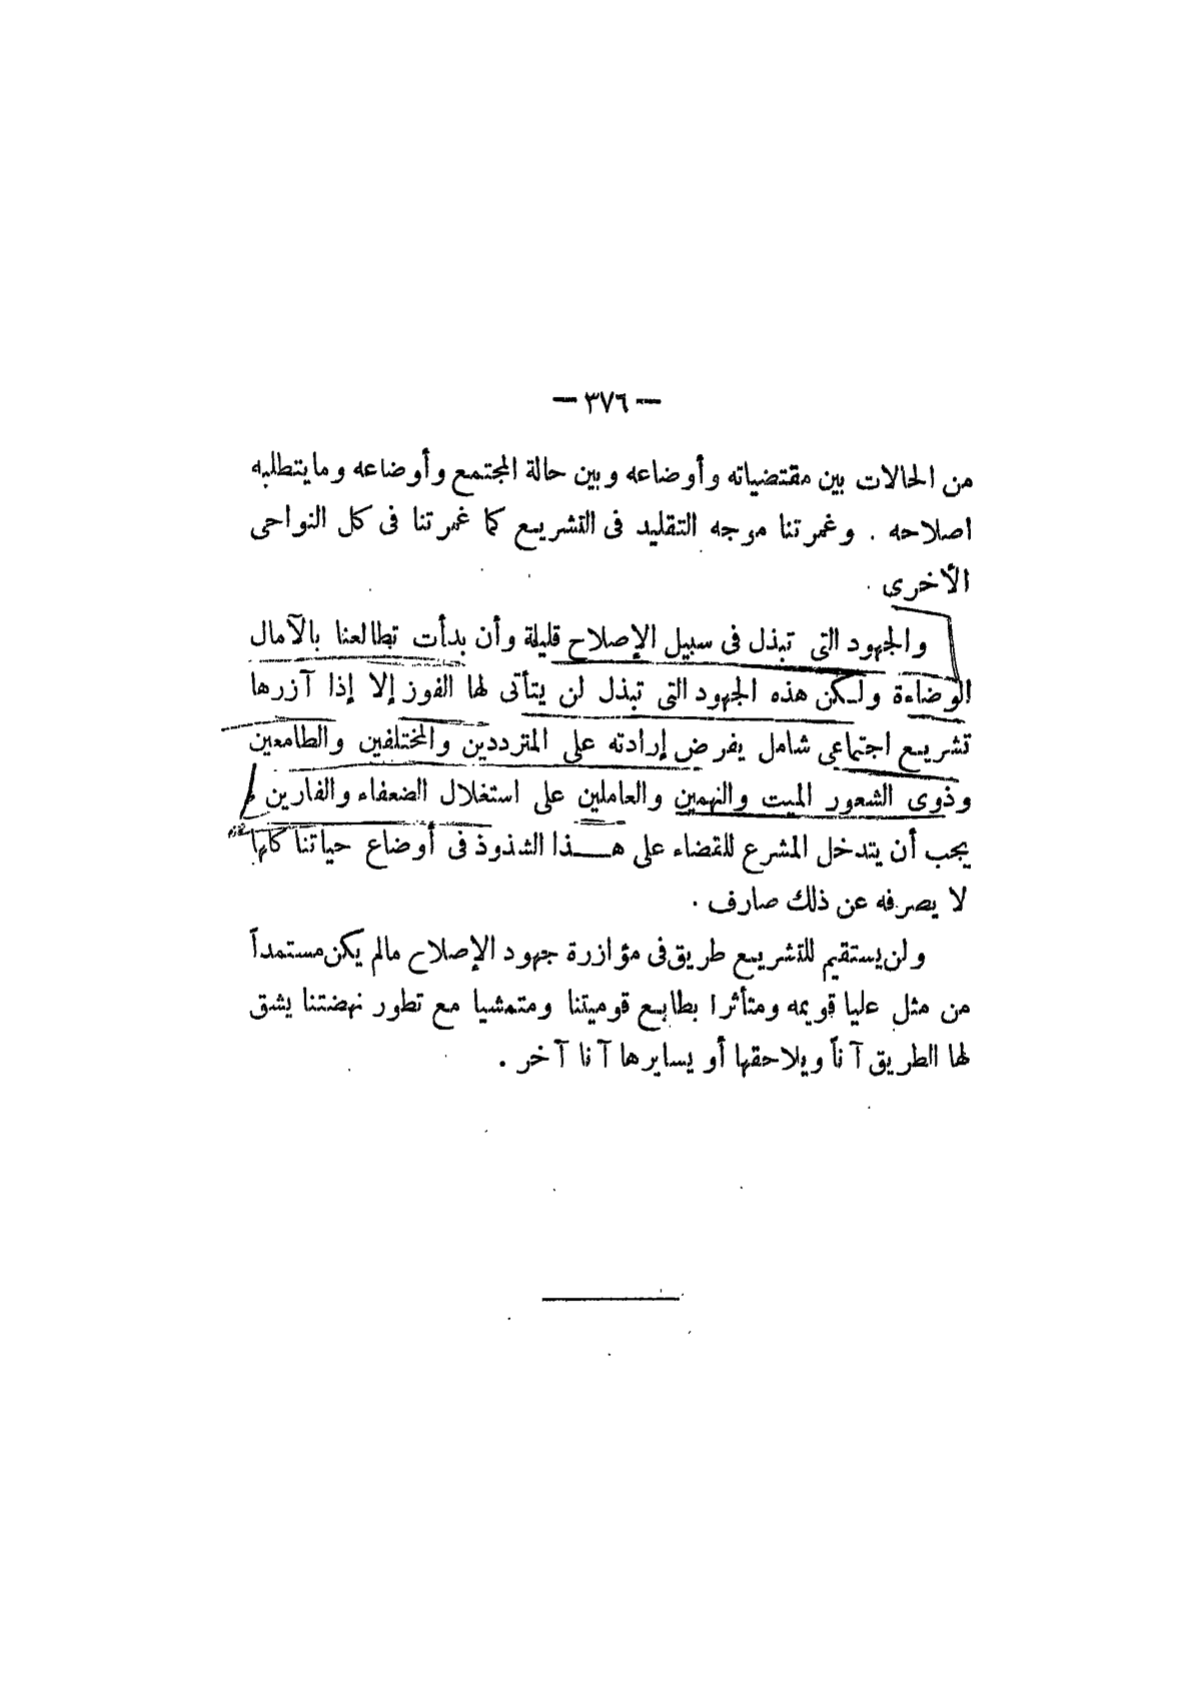 — ٣٧٦ —
من الحالات بين مقتضياته وأوضاعه وبين حالة المجتمع وأوضاعه وما يتطلبه
اصلاحه . وغمرتنا موجه التقليد فى التشريع كما غمرتنا فى كل النواحى
الأخرى .
والجهود التى تبذل فى سبيل الإصلاح قليلة وأن بدأت تطالعنا بالآمال
الوضاءة ولكن هذه الجهود التى تبذل لن يتأتى لها الفوز إلا إذا آزرها
تشريع اجتماعى شامل يفرض إرادته على المترددين والمختلفين والطامعين
وذوى الشعور الميت والنهمين والعاملين على استغلال الضعفاء والفارين
يجب أن يتدخل المشرع للقضاء على هذا الشذوذ فى أوضاع حياتنا كلها
لا يصرفه عن ذلك صارف .
ولن يستقيم للتشريع طريق فى مؤازرة جهود الإصلاح مالم يكن مستمداً
من مثل عليا قويمه ومتأثرا بطابع قوميتنا ومتمشيا مع تطور نهضتنا يشق
لها الطريق آناً ويلاحقها أو يسايرها آنا آخر .